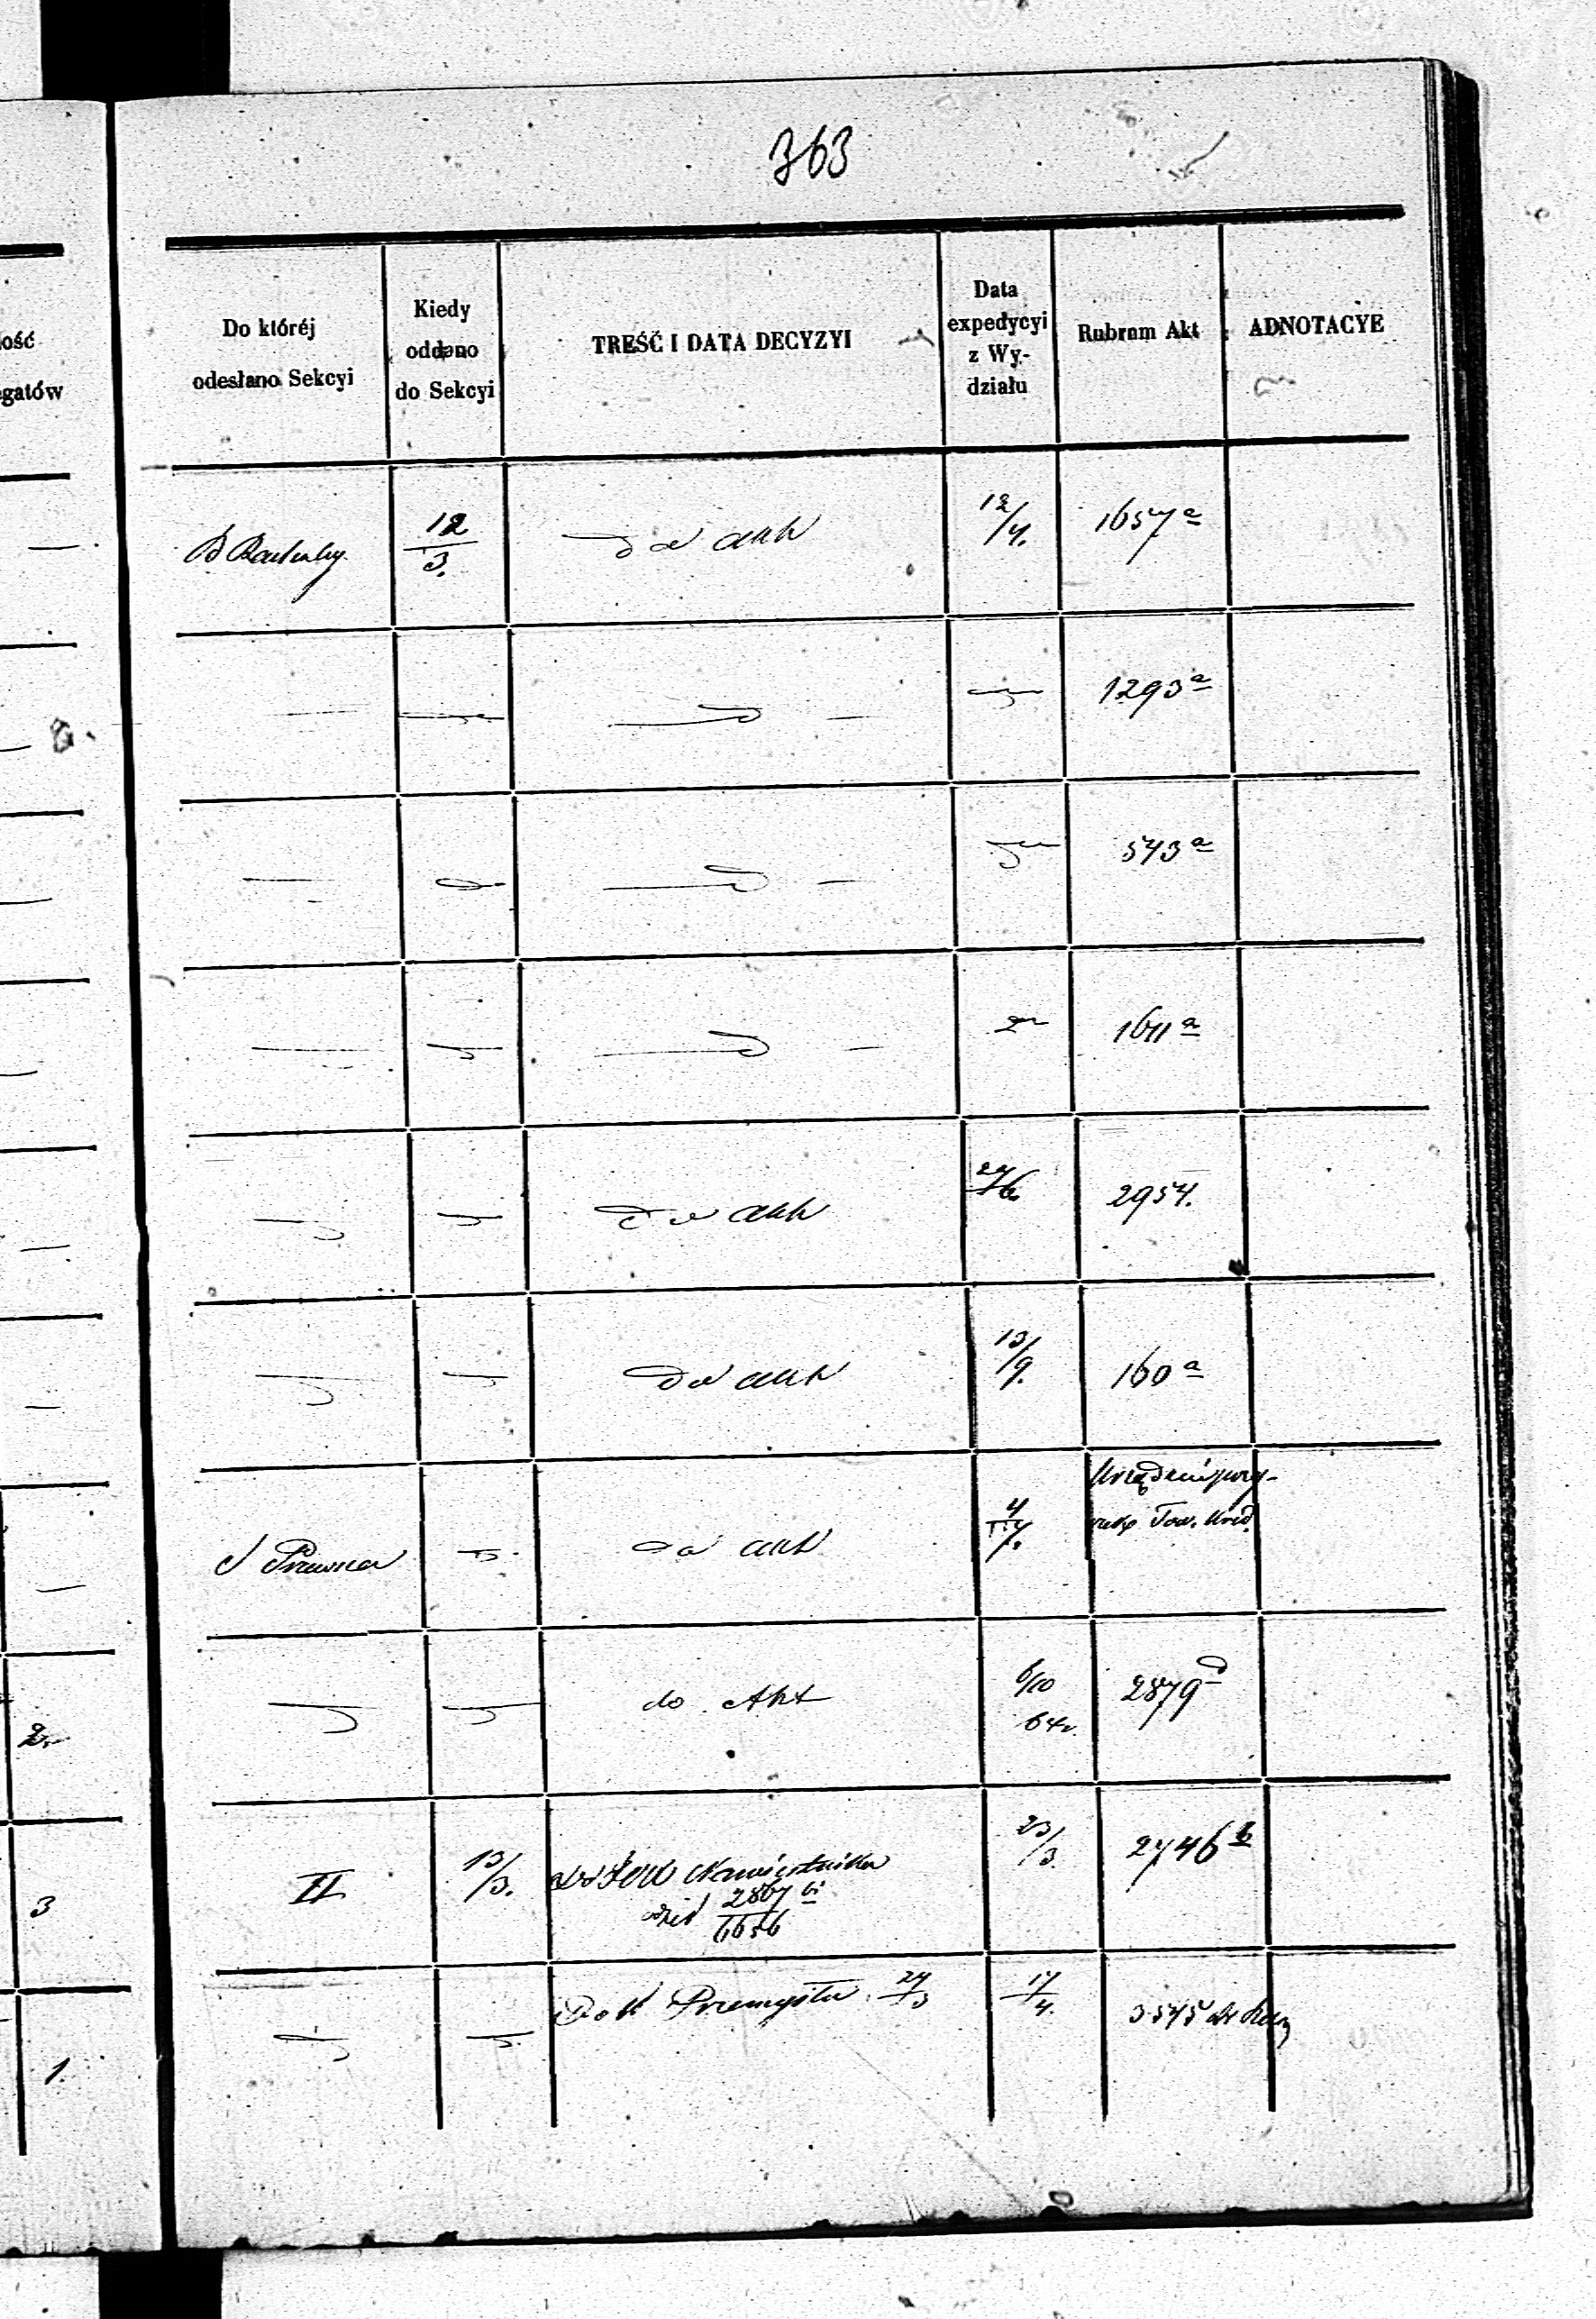 363
ość
egatów
Do któréj
odesłano Sekcyi
Kiedy
oddano
do Sekcyi
TREŚĆ I DATA DECYZYI
Data
expedycyi
z Wy-
działu
Rubrum Akt
ADNOTACYE
12/3.
do akt
12/4.
1657 a
1293 a
573 a
1611 a
do akt
2954.
do akt
13/9.
160 a
Prawna
do akt
4/7.
Tow. Kred.
do Akt
6/10
64 r.
2879 d
2.
II
13/3.
Namiestnika
2867
6656
23/3.
2746 b
3
Przemysłu
24/3
17/4.
3575
1.